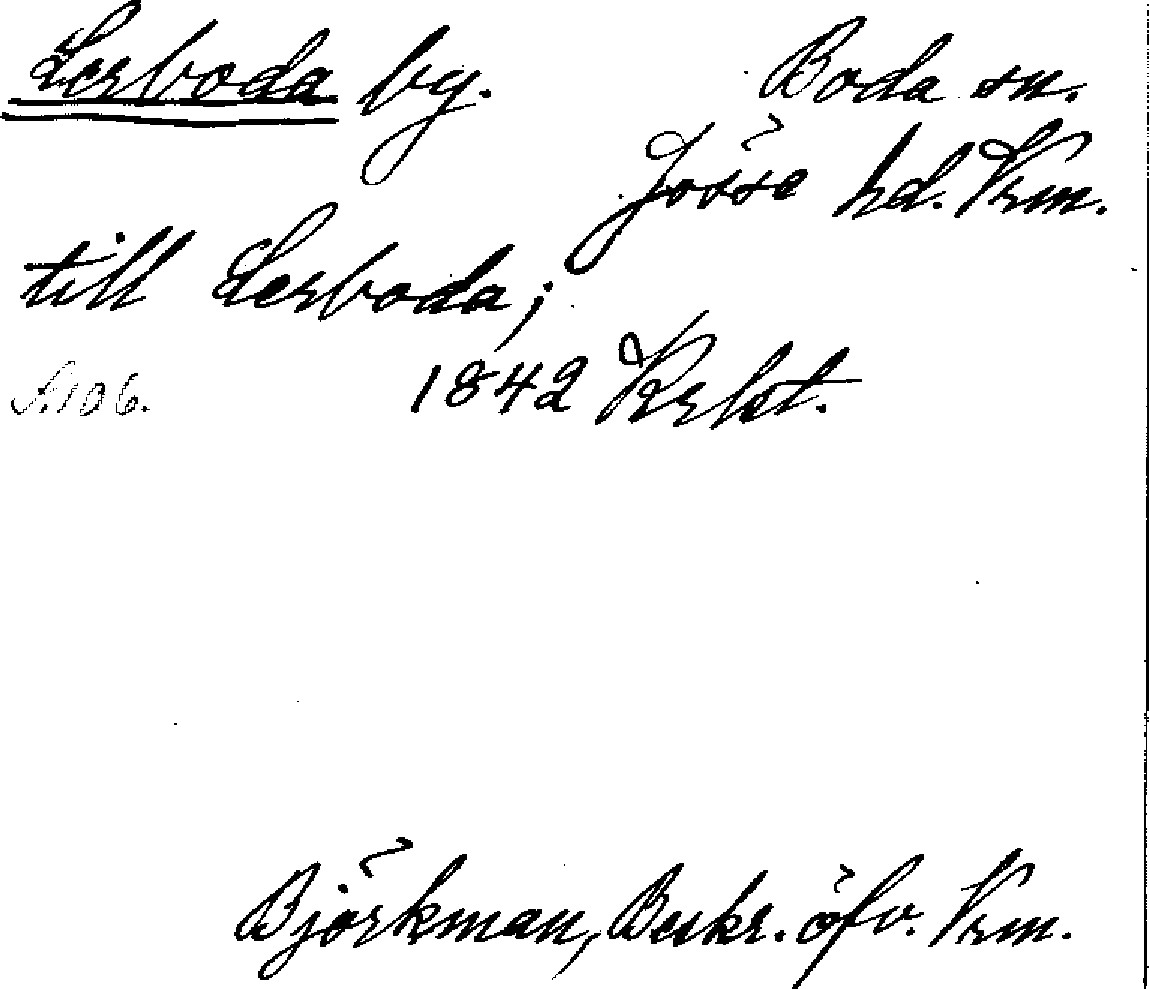 Lerboda by. Boda sn.
Jösse hd. Vrm.
till Lerboda;
S.106. 1842 Krlst.
Björkman, Beskr. öfv. Vrm.